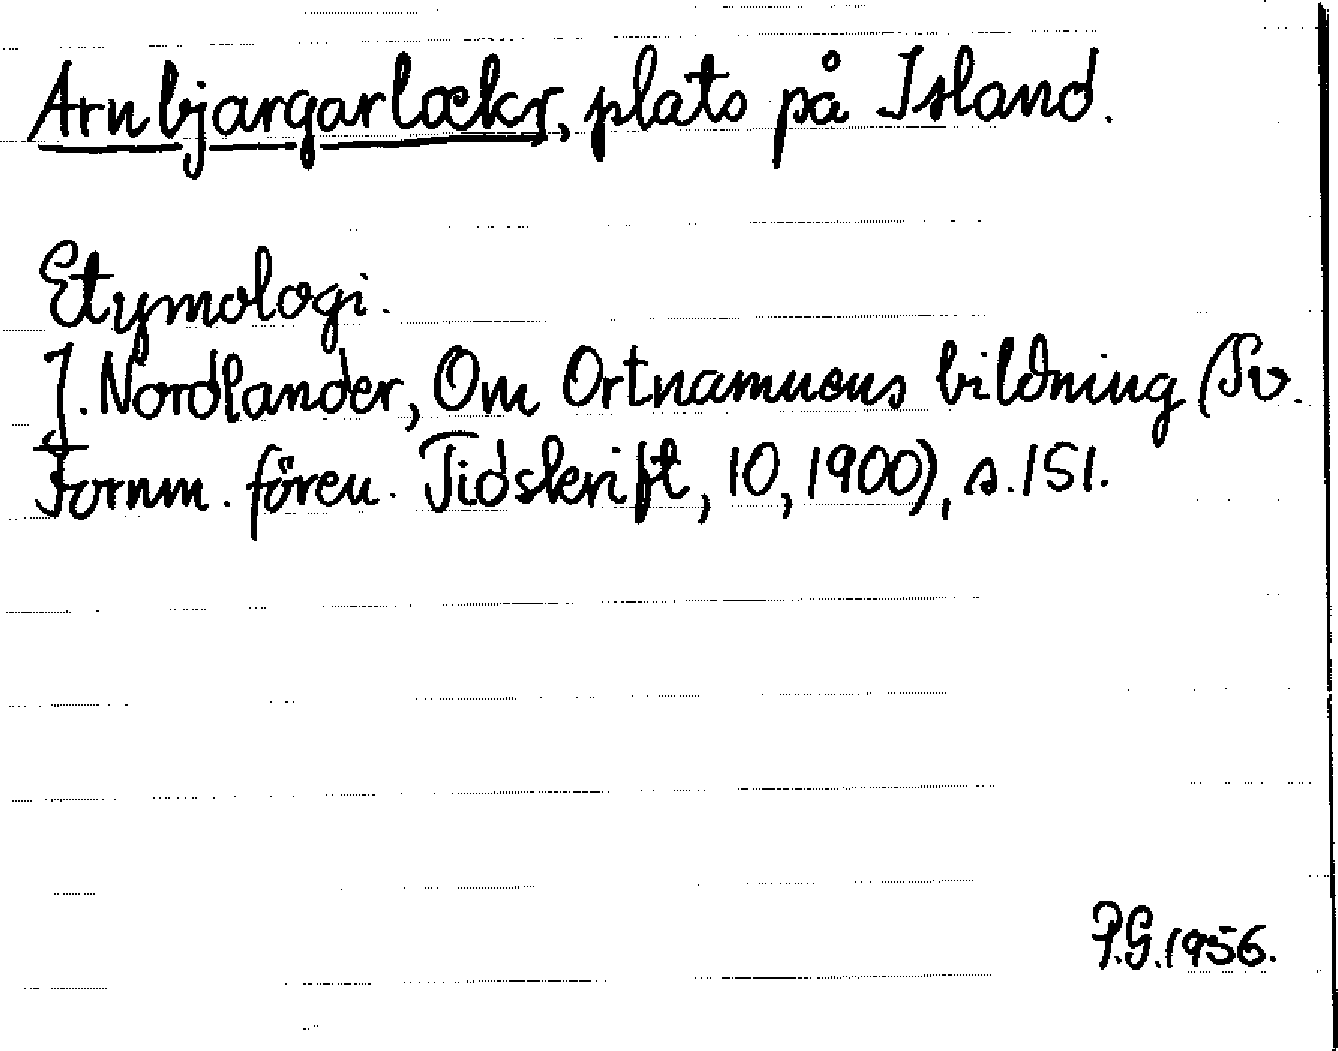 Arnbjargarlækr, plats på Island.
Etymologi.
J. Nordlander, Om Ortnamnens bildning (Sv.
Fornm. fören. Tidskrift, 10, 1900), s. 151.
P.G. 1956.